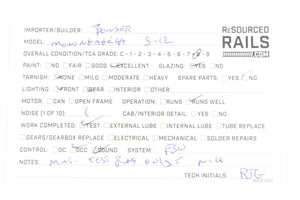 RESOURCED
RAILS
.COM
IMPORTER/BUILDER: BOWSER
MODEL: S-12
OVERALL CONDITION/TCA GRADE: C - 1 - 2 - 3 - 4 - 5 - 6 - 7 - 8 - 9
PAINT: NO FAIR GOOD EXCELLENT GLAZING: YES NO
TARNISH: NONE MILD MODERATE HEAVY SPARE PARTS: YES NO
LIGHTING: FRONT REAR INTERIOR OTHER:
MOTOR: CAN OPEN FRAME OPERATION: RUNS RUNS WELL
NOISE (1 OF 10): 1 CAB/INTERIOR DETAIL: YES NO
WORK COMPLETED: TEST EXTERNAL LUBE INTERNAL LUBE TUBE REPLACE
GEARS/GEARBOX REPLACE ELECTRICAL MECHANICAL SOLDER REPAIRS
CONTROL: DC DCC SOUND SYSTEM:
NOTES: TEST ONLY
TECH INITIALS: